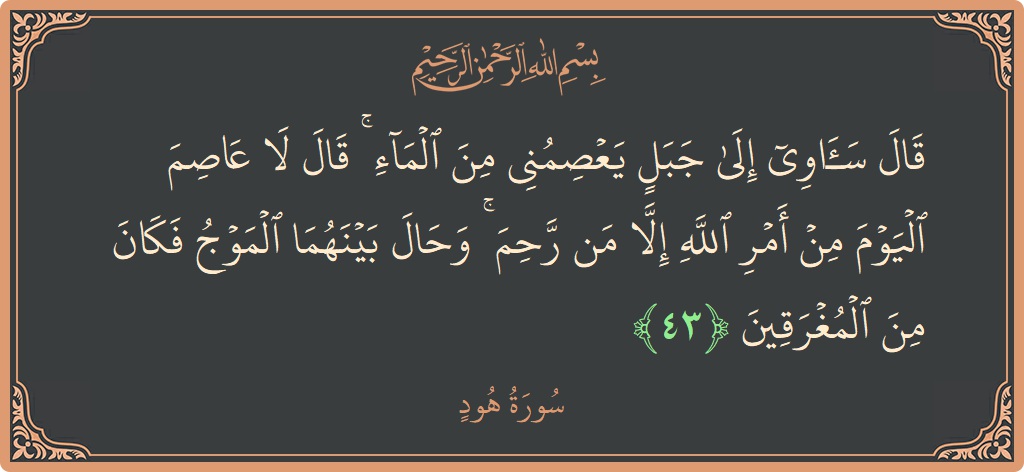 بِسْمِ اللهِ الرَّحْمٰنِ الرَّحِيْمِ
قَالَ سَـَٔاوِىٓ إِلَىٰ جَبَلٍ يَعْصِمُنِى مِنَ ٱلْمَآءِ ۚ قَالَ لَا عَاصِمَ
ٱلْيَوْمَ مِنْ أَمْرِ ٱللَّهِ إِلَّا مَن رَّحِمَ ۚ وَحَالَ بَيْنَهُمَا ٱلْمَوْجُ فَكَانَ
مِنَ ٱلْمُغْرَقِينَ ﴿٤٣﴾
سُورَةُ هُودٍ